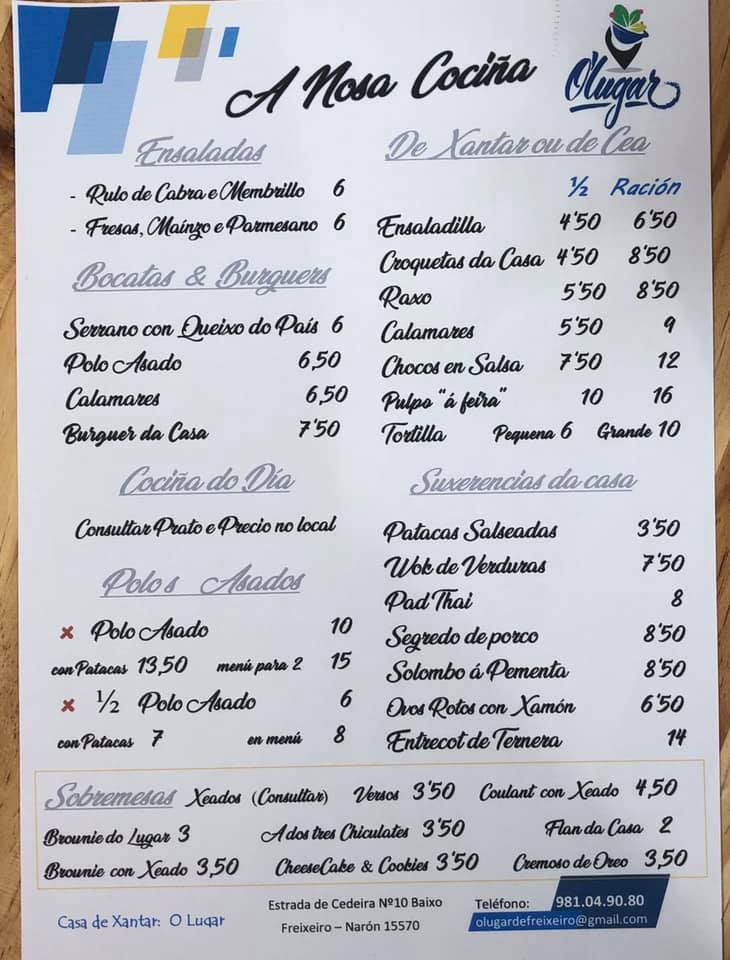 A Nosa Cociña
O'lugar
Ensaladas
- Rulo de Cabra e Membrillo 6
- Fresas, Maínzo e Parmesano 6
Bocatas & Burguers
Serrano con Queixo do País 6
Polo Asado 6,50
Calamares 6,50
Burguer da Casa 7'50
Cociña do Día
Consultar Prato e Precio no local
Polo s Asados
x Polo Asado 10
con Patacas 13,50 menú para 2 15
x ½ Polo Asado 6
con Patacas 7 en menú 8
De Xantar ou de Cea
½ Ración
Ensaladilla 4'50 6'50
Croquetas da Casa 4'50 8'50
Raxo 5'50 8'50
Calamares 5'50 9
Chocos en Salsa 7'50 12
Pulpo "á feira" 10 16
Tortilla Pequena 6 Grande 10
Suxerencias da casa
Patacas Salseadas 3'50
Wok de Verduras 7'50
Pad Thai 8
Segredo de porco 8'50
Solombo á Pementa 8'50
Ovos Rotos con Xamón 6'50
Entrecot de Ternera 14
Sobremesas Xeados (Consultar) Versos 3'50 Coulant con Xeado 4,50
Brownie do Lugar 3 A dos tres Chiculates 3'50 Flan da Casa 2
Brownie con Xeado 3,50 CheeseCake & Cookies 3'50 Cremoso de Oreo 3,50
Casa de Xantar: O Lugar
Estrada de Cedeira Nº10 Baixo
Freixeiro – Narón 15570
Teléfono: 981.04.90.80
olugardefreixeiro@gmail.com